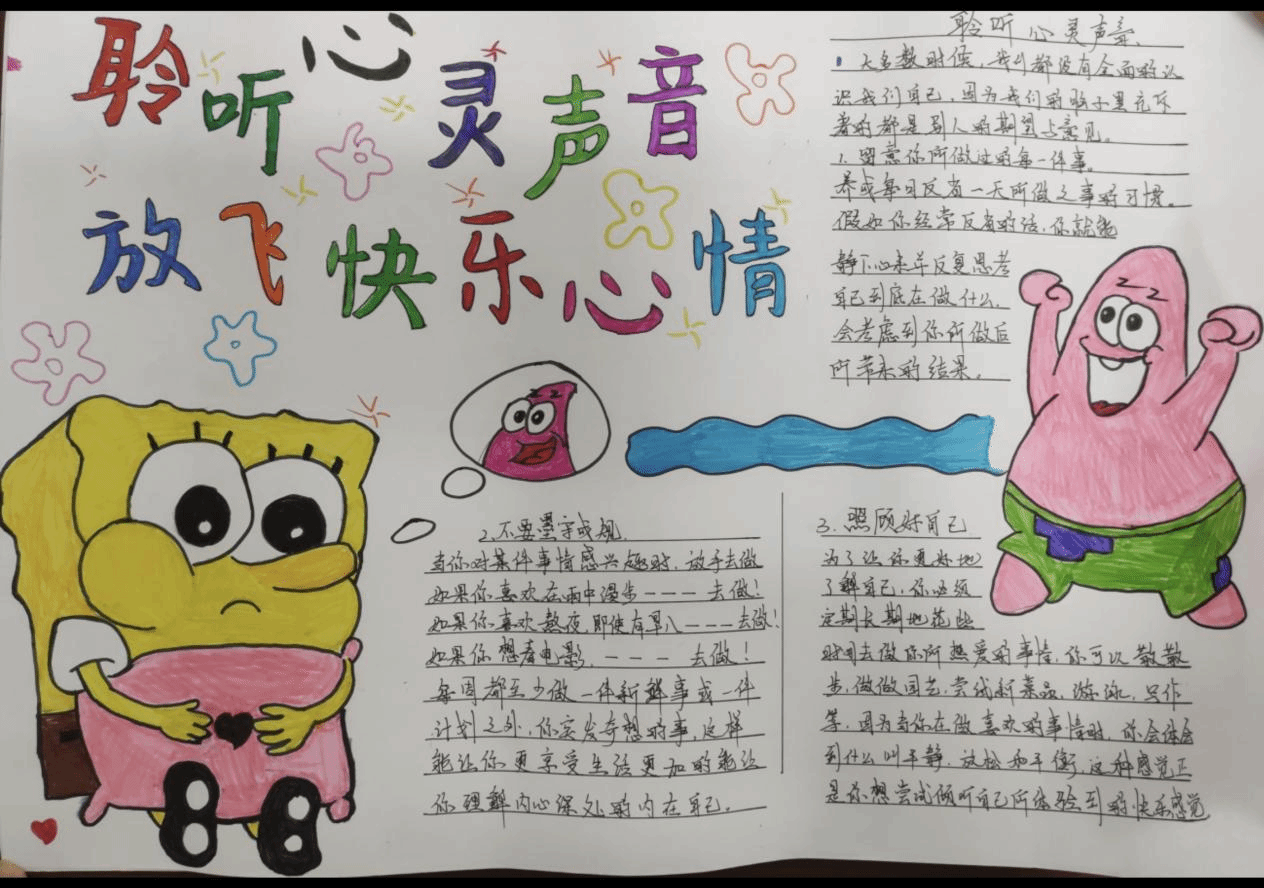 聆听心灵声音
放飞快乐心情
聆听心灵声音
大多数时候，我们都没有全面的认
识我们自己，因为我们的脑子里充斥
着的都是别人的期望与意见。
1.留意你所做过的每一件事。
养成每日反省一天所做之事的习惯。
假如你经常反省的话，你就能
静下心来并反复思考
自己到底在做什么，
会考虑到你所做后
所带来的结果。
2.不要墨守成规
当你对某件事情感兴趣时，放手去做
如果你喜欢在雨中漫步---去做！
如果你喜欢熬夜，即使有早八---去做！
如果你想看电影，--- 去做！
每周都至少做一件新鲜事或一件
计划之外，你突发奇想的事，这样
能让你更享受生活更加的能让
你理解内心深处的内在自己。
3.照顾好自己
为了让你更好地
了解自己，你必须
定期长期地花些
时间去做你所热爱的事情，你可以散散
步，做做园艺，尝试新菜品，游泳，写作
等，因为当你在做喜欢的事情时，你会体会
到什么叫平静，放松和平衡，这种感觉正
是你想尝试倾听自己所体验到的快乐感觉